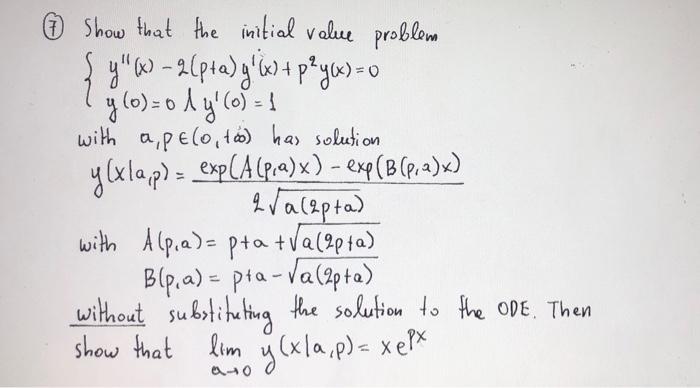 ⑦ Show that the initial value problem
{ y''(x) - 2(p+a)y'(x) + p²y(x) = 0
y(0) = 0 ∧ y'(0) = 1
with a,p ∈ (0,+∞) has solution
y(x|a,p) = exp(A(p,a)x) - exp(B(p,a)x)
2√a(2p+a)
with A(p,a) = p+a+√a(2p+a)
B(p,a) = p+a-√a(2p+a)
without substituting the solution to the ODE. Then
show that lim y(x|a,p) = xe^px
a→0